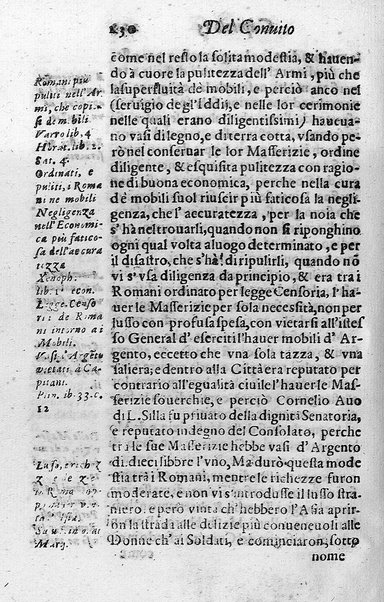 230 Del Conuito
come nel resto la solita modestia, & hauen-
do à cuore la pulitezza dell' Armi, più che
la superfluità de mobili, e perciò anco nel
seruigio de gl'Iddij, e nelle lor cerimonie
nelle quali erano diligentissimi, haueua-
no vasi di legno, e di terra cotta, vsando pe-
rò nel conseruar le lor Masserizie, ordine
diligente, & esquisita pulitezza con ragio-
ne di buona economica, perche nella cura
dè mobili suol riuscir più faticosa la negli-
genza, che l'accuratezza, per la noia che
s'hà nel trouarsi, quando non si riponghino
ogni qual volta al uogo determinato, e per
il disastro, che s'hà di ripulirsi, quando nō
vi s'vsa diligenza da principio, & era trà i
Romani ordinato per legge Censoria, l'ha-
uer le Masserizie per sola necessità, non per
lusso con profusa spesa, con vietarsi all'istes-
so General d'eserciti l'hauer mobili d'Ar-
gento, eccetto che vna sola tazza, & vna
saliera; e dentro alla Città era reputato per
contrario all'egualità ciuile l'hauer le Mas-
serizie souerchie, e perciò Cornelio Auo
di L. Silla fu priuato della dignità Senatoria,
e reputato indegno del Consolato, perche
trà le sue Masserizie hebbe vasi d'Argento
di dieci libbre l'vno, Ma durò questa mode
stia trà i Romani, mentre le richezze furon
moderate, e non vi s'introdusse il lusso stra-
niero. e però vinta ch'hebbero l'Asia aprir-
on la strada alle delizie più conueneuoli alle
Donne ch'ai Soldati, e cominciaron, sotto
nome
Romani più
puliti nell'Ar
mi, che copi-
si de mobili
Varro lib. 4
Horat. lib. 2.
Sat. 4.
Ordinati, e
puliti, i Roma
ni ne mobili
Negligenza
nell'Economi-
ca più fatico-
sa dell'accura
tezza
Xenoph.
lib. 1. econ.
Legge Censo
ria de Roma
ni intorno ai
Mobili.
Vasi d'Argēto
vietati à Ca-
pitani.
Plin. lib. 33. c.
12